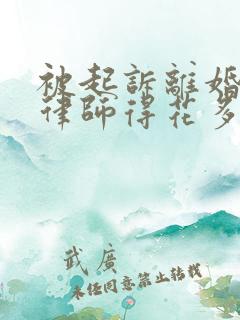 被起訴離婚
律師得花多
武廣
未任同意禁止转载